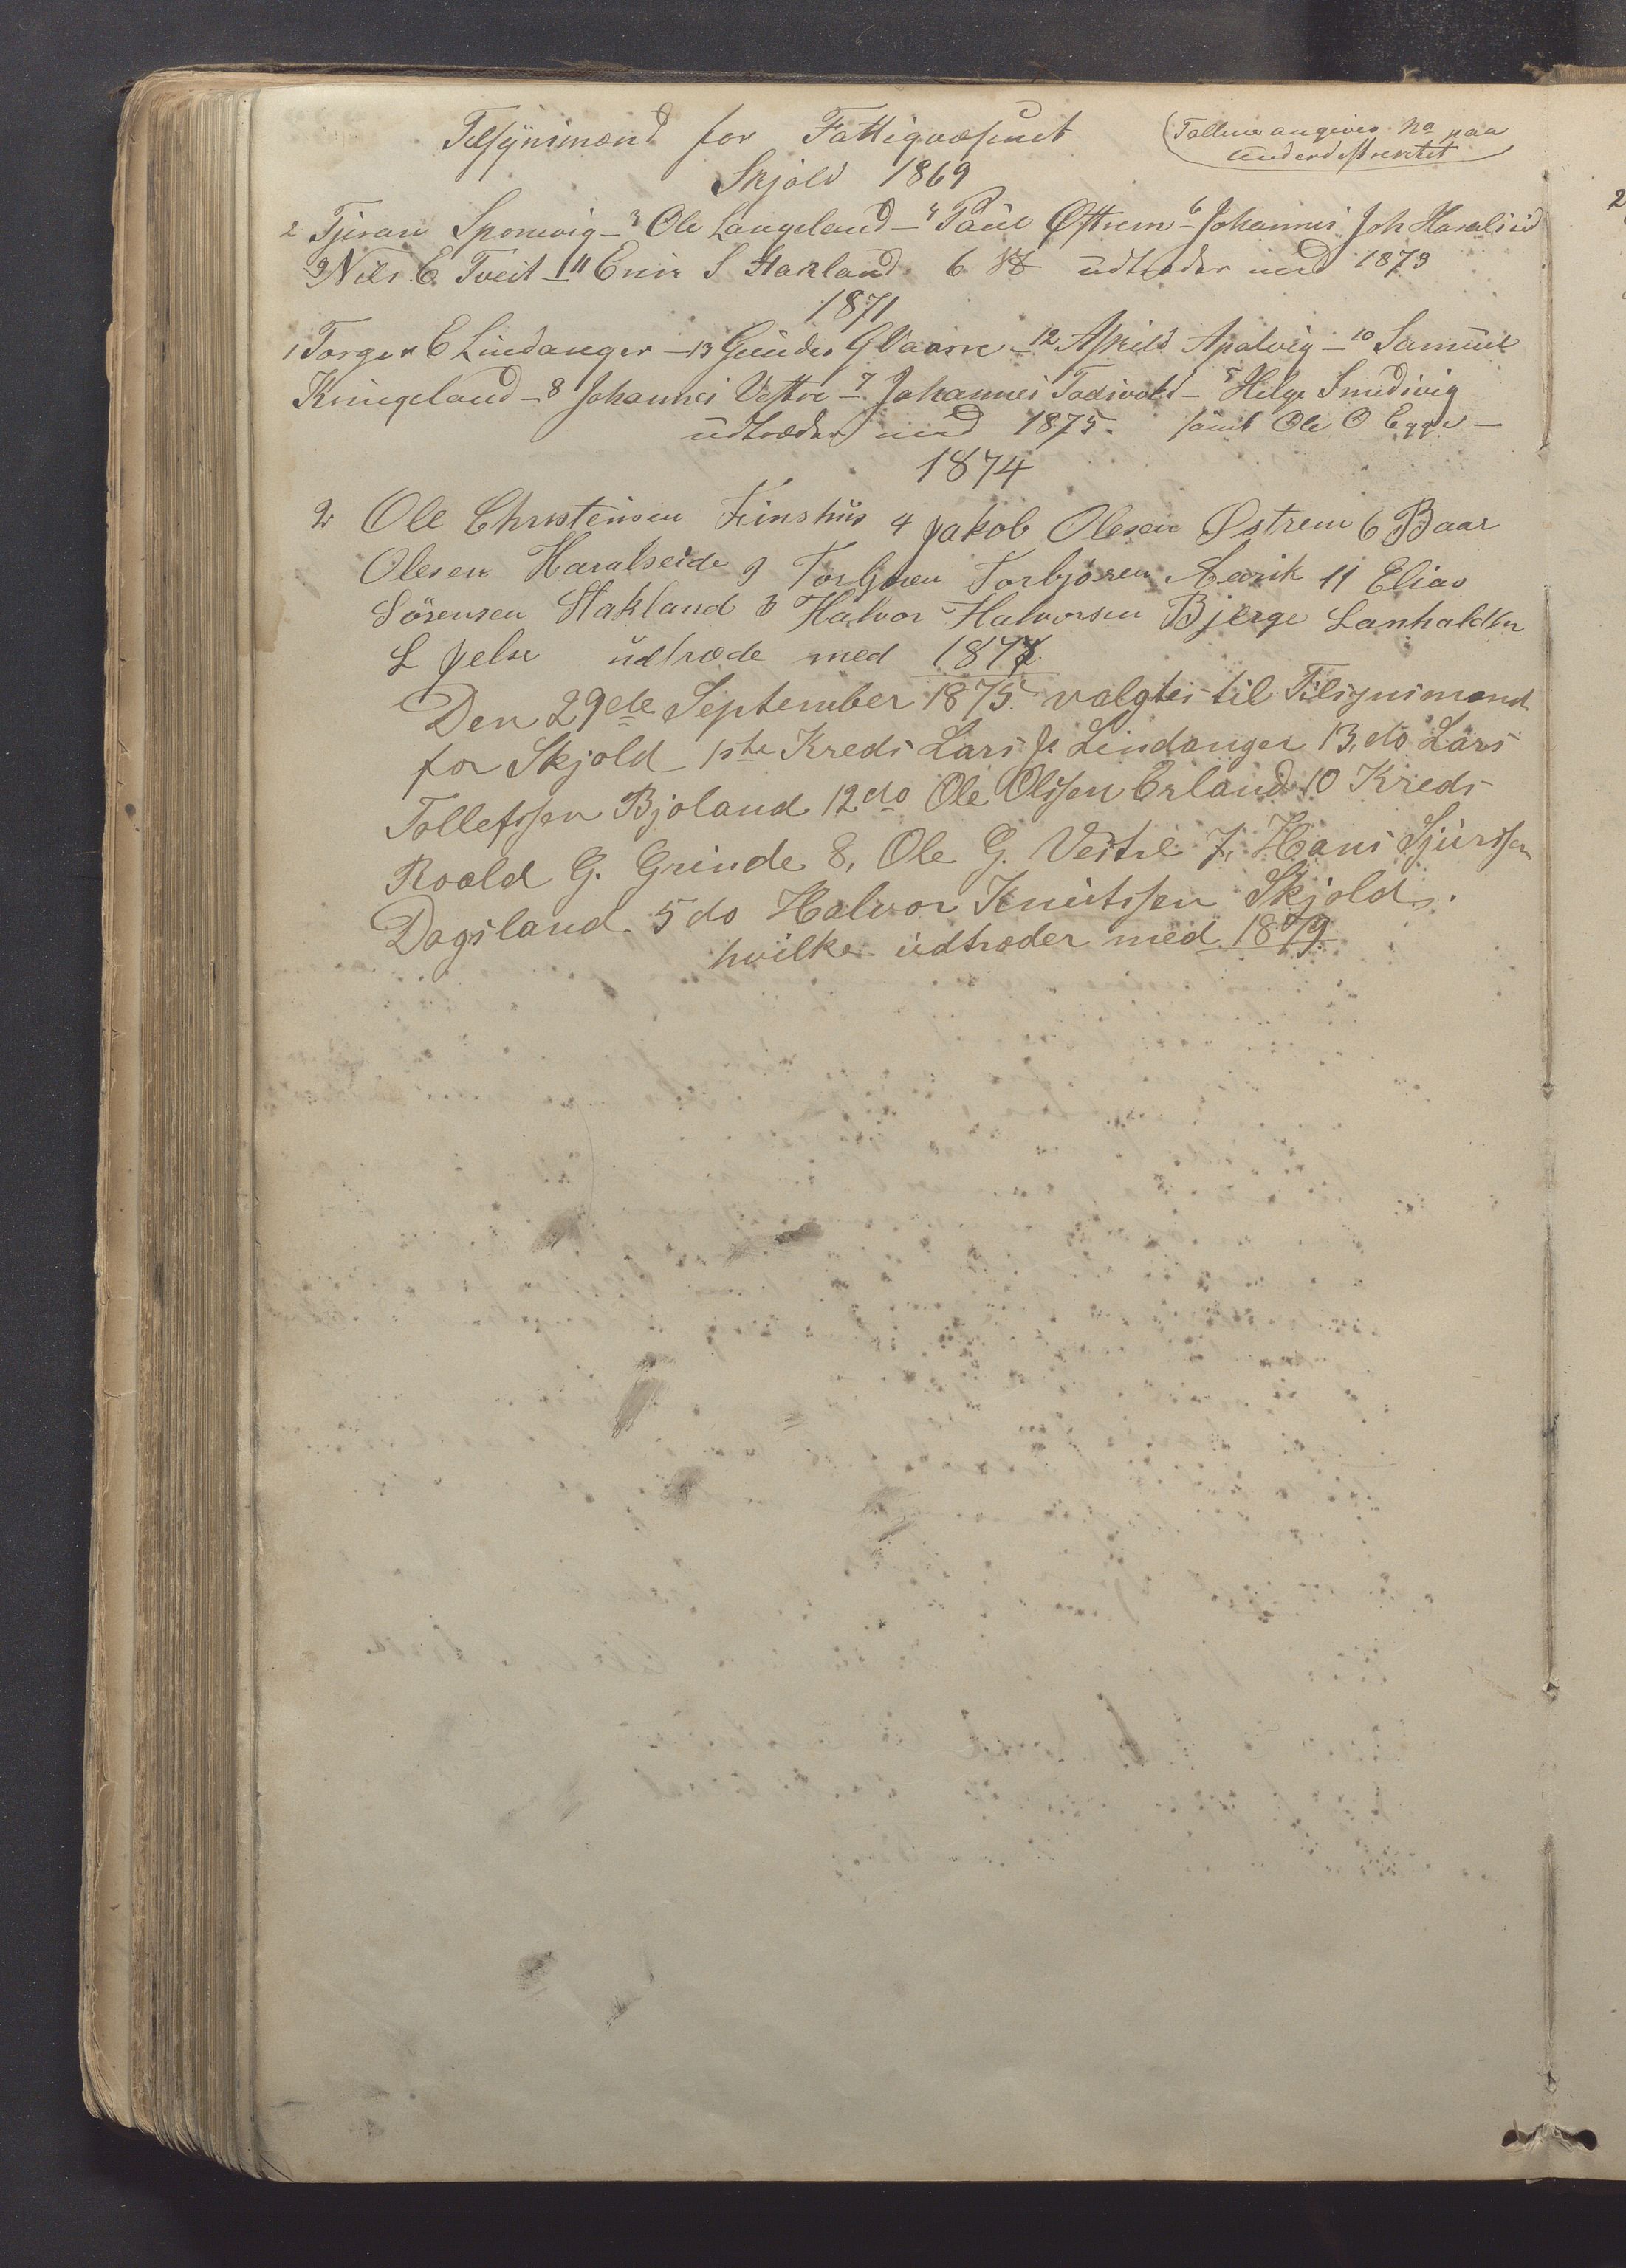 Tilsynsmænd for Fattigvæsenet
(Tallene angiver No paa
Underdistriktet
Skjold 1869
2 Tjeran Sponevig – 3 Ole Langeland – 4 Paul Østrem – 6 Johannes Joh Haralseid
9 Nils E Tveit – 11 Enir S Stakland. 6 udtræder med 1873
1871
1 Torger E Lindanger – 13 Gunder G Vaare – 12 Askild Apalvig – 10 Samuel
Kringeland – 8 Johannes Vestre – 7 Johannes – 5 Helge Smedsvig
udtræder med 1875. samt Ole O Egge –
1874
2 Ole Christensen Finshus 4 Jakob Olesen Østrem 6 Baar
Olesen Haralseide 9 Torbjøren Aarik 11 Elias
Sörensen Stakland 3 Halvor Halvorsen Bjerge
udtræde med 1877
Den 29de September 1875. valgtes til Tilsynsmænd
for Skjold 1ste Kreds Lars J. Lindanger 13, do Lars
Tollefssen Bjoland 12 do Ole Olssen Erland 10 Kreds
Roald G. Grinde 8, Ole G. Vestre 7, Hans Sjurssen
Dagsland. 5 do Halvor Knutssen Skjold.
hvilke udtræder med 1879.
2